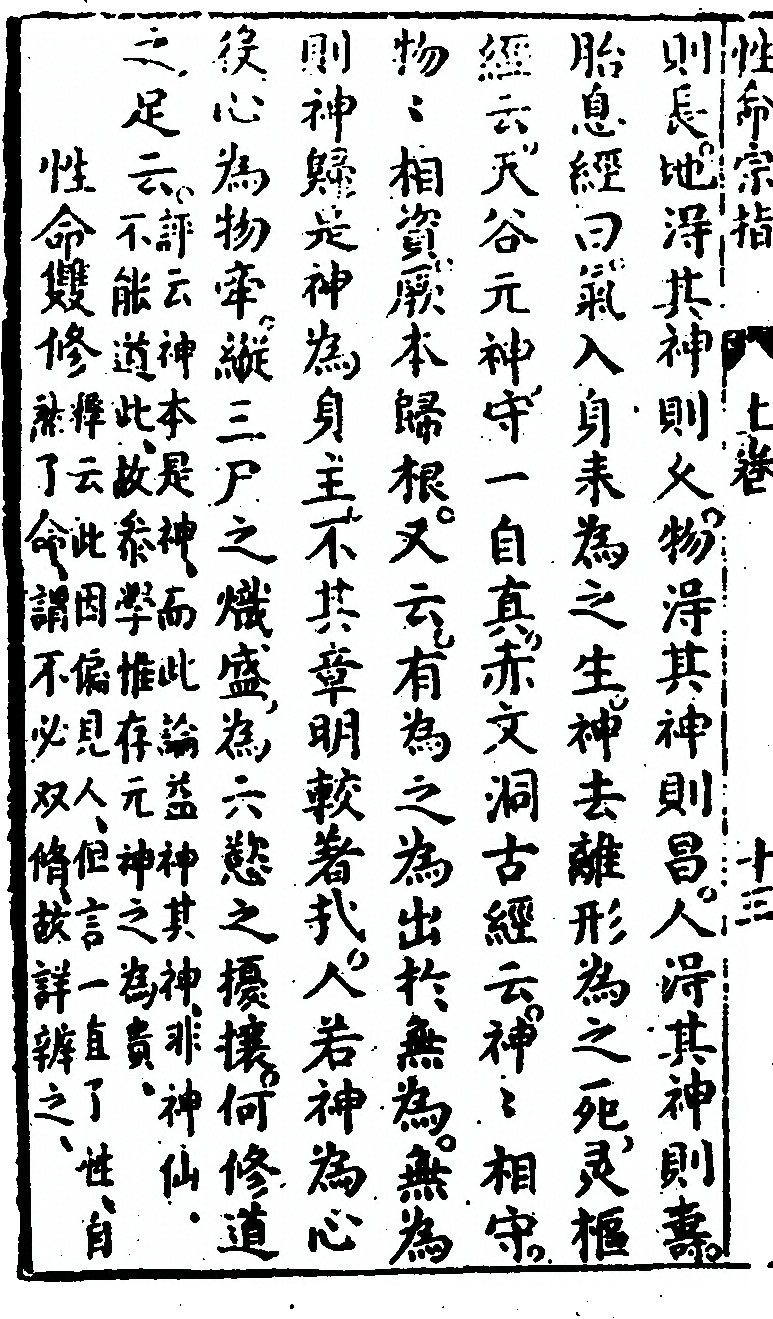 性命宗指 上卷 十三
則長。地淂其神則久。物淂其神則昌。人淂其神則壽。
胎息經曰。氣入身来為之生。神去離形為之死。灵樞
經云。天谷元神。守一自真。赤文洞古經云。神〻相守。
物〻相資。厥本歸根。又云。有為之為出於無為。無為
則神歸。是神為身主。不其章明較著哉。人若神為心
役。心為物牽。縱三尸之熾盛。為六慾之擾攘。何修道
之足云。
評云神本是神、而此論益神其神、非神仙
不能道此、故叅學惟存元神之為貴、
性命雙修
釋云此因偏見人、但言一直了性、自
然了命、謂不必双脩、故詳辨之、